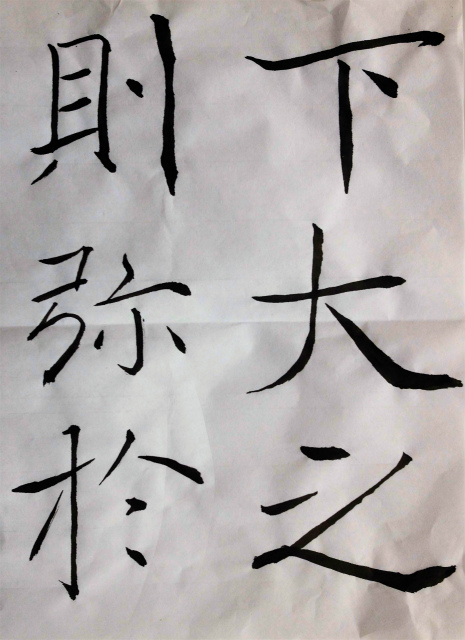 下大之
則弥於